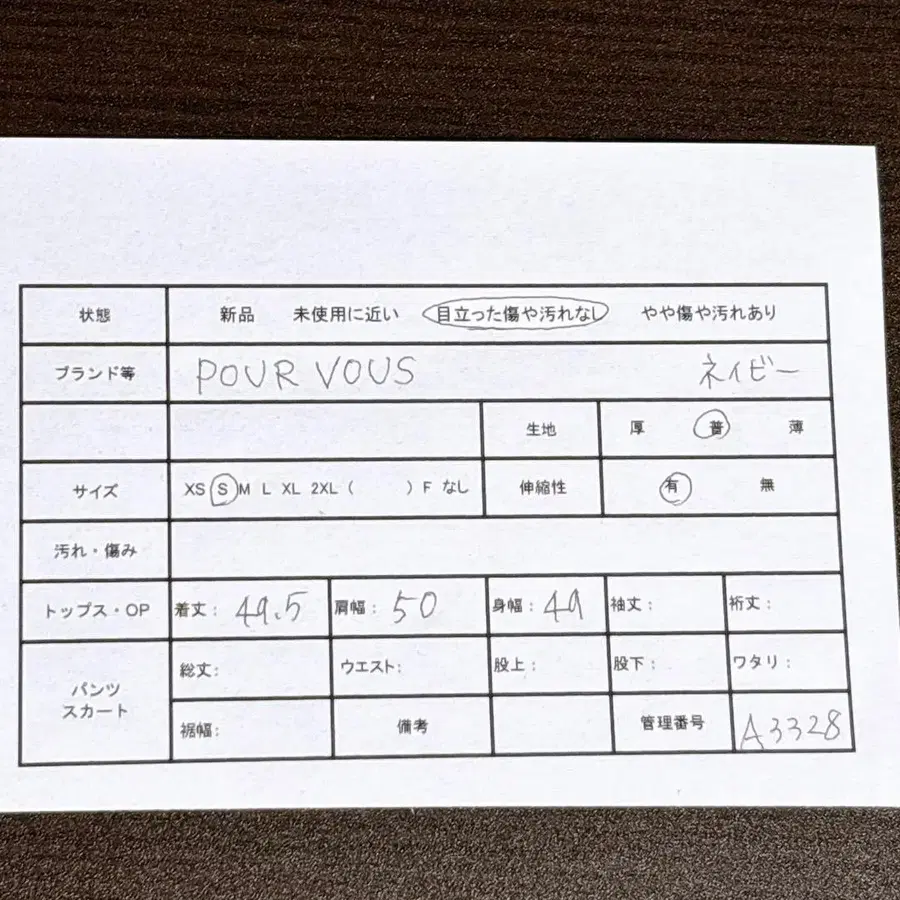 状態 新品 未使用に近い 目立った傷や汚れなし やや傷や汚れあり
ブランド等 POUR VOUS ネイビー
生地 厚 普 薄
サイズ XS S M L XL 2XL ( ) F なし 伸縮性 有 無
汚れ・傷み
トップス・OP 着丈: 49.5 肩幅: 50 身幅: 49 袖丈: 裄丈:
パンツ スカート 総丈: ウエスト: 股上: 股下: ワタリ:
裾幅: 備考 管理番号 A3328